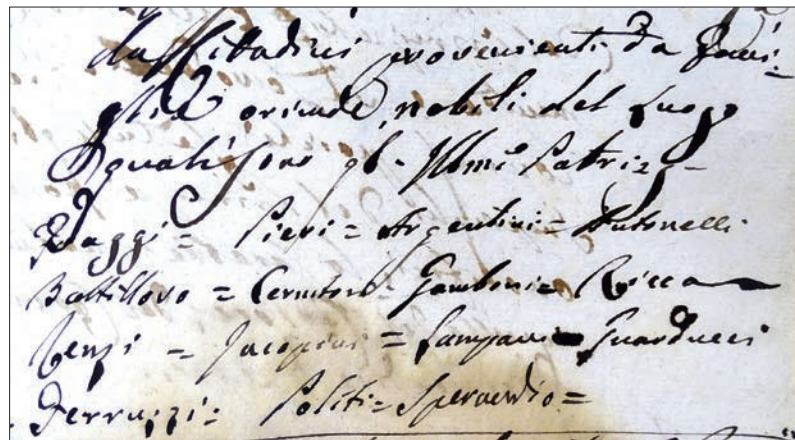 da Cittadini provenienti da Fami=
glie oriunde, nobili del Luogo
quali sono gl' Illmi Patrizj =
Raggi = Pieri = Argentini = Antonelli
Battilloro = Cerultori = Gamboni = Ricca
Renzi = Jacopini = Lampani = Guarducci
Ferruzzi = Politi = Sperandio =